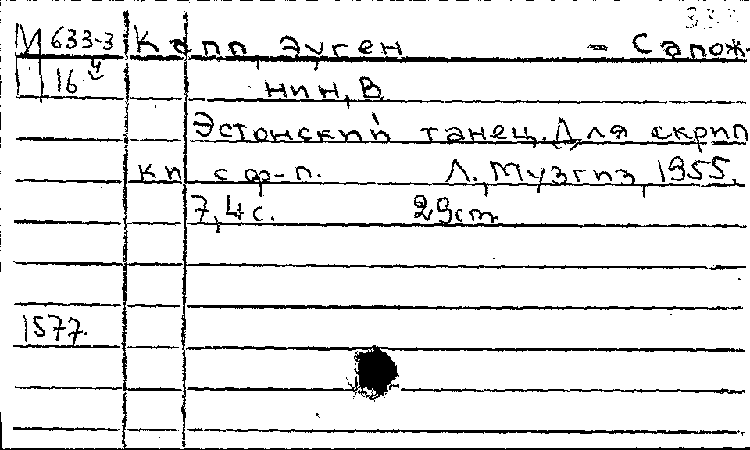 М 633-3 Капп, Эуген - Сапож-
16 нин, В
Эстонский танец. Для скрип
ки с ф-п. Л., Музгиз, 1955.
7, 4 с. 29 cm.
1577.